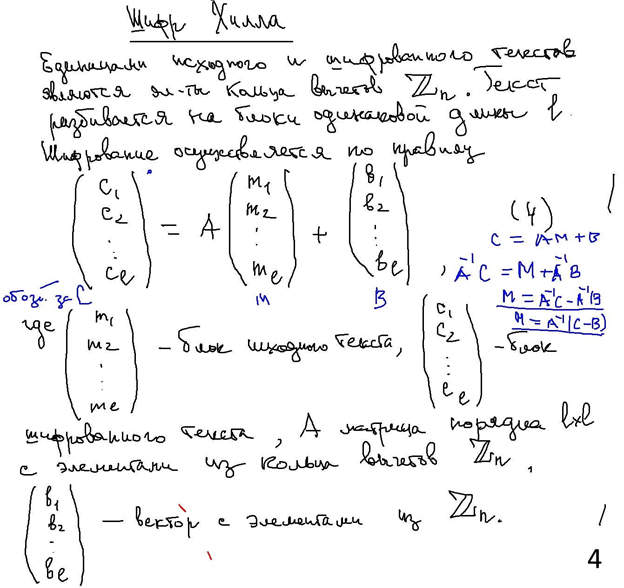 Шифр Хилла
Единицами исходного и шифрованного текстов
являются эл-ты кольца вычетов ℤn. Текст
разбивается на блоки одинаковой длины l.
Шифрование осуществляется по правилу
(c1 c2 ⋮ cl) = A (m1 m2 ⋮ ml) + (b1 b2 ⋮ bl), (4)
C = AM + B
A⁻¹C = M + A⁻¹B
обозн. за C M B M = A⁻¹C – A⁻¹B
M = A⁻¹(C – B)
где (m1 m2 ⋮ ml) – блок исходного текста, (c1 c2 ⋮ cl) – блок
шифрованного текста, A матрица порядка l×l
с элементами из кольца вычетов ℤn,
(b1 b2 ⋮ bl) — вектор с элементами из ℤn.
4